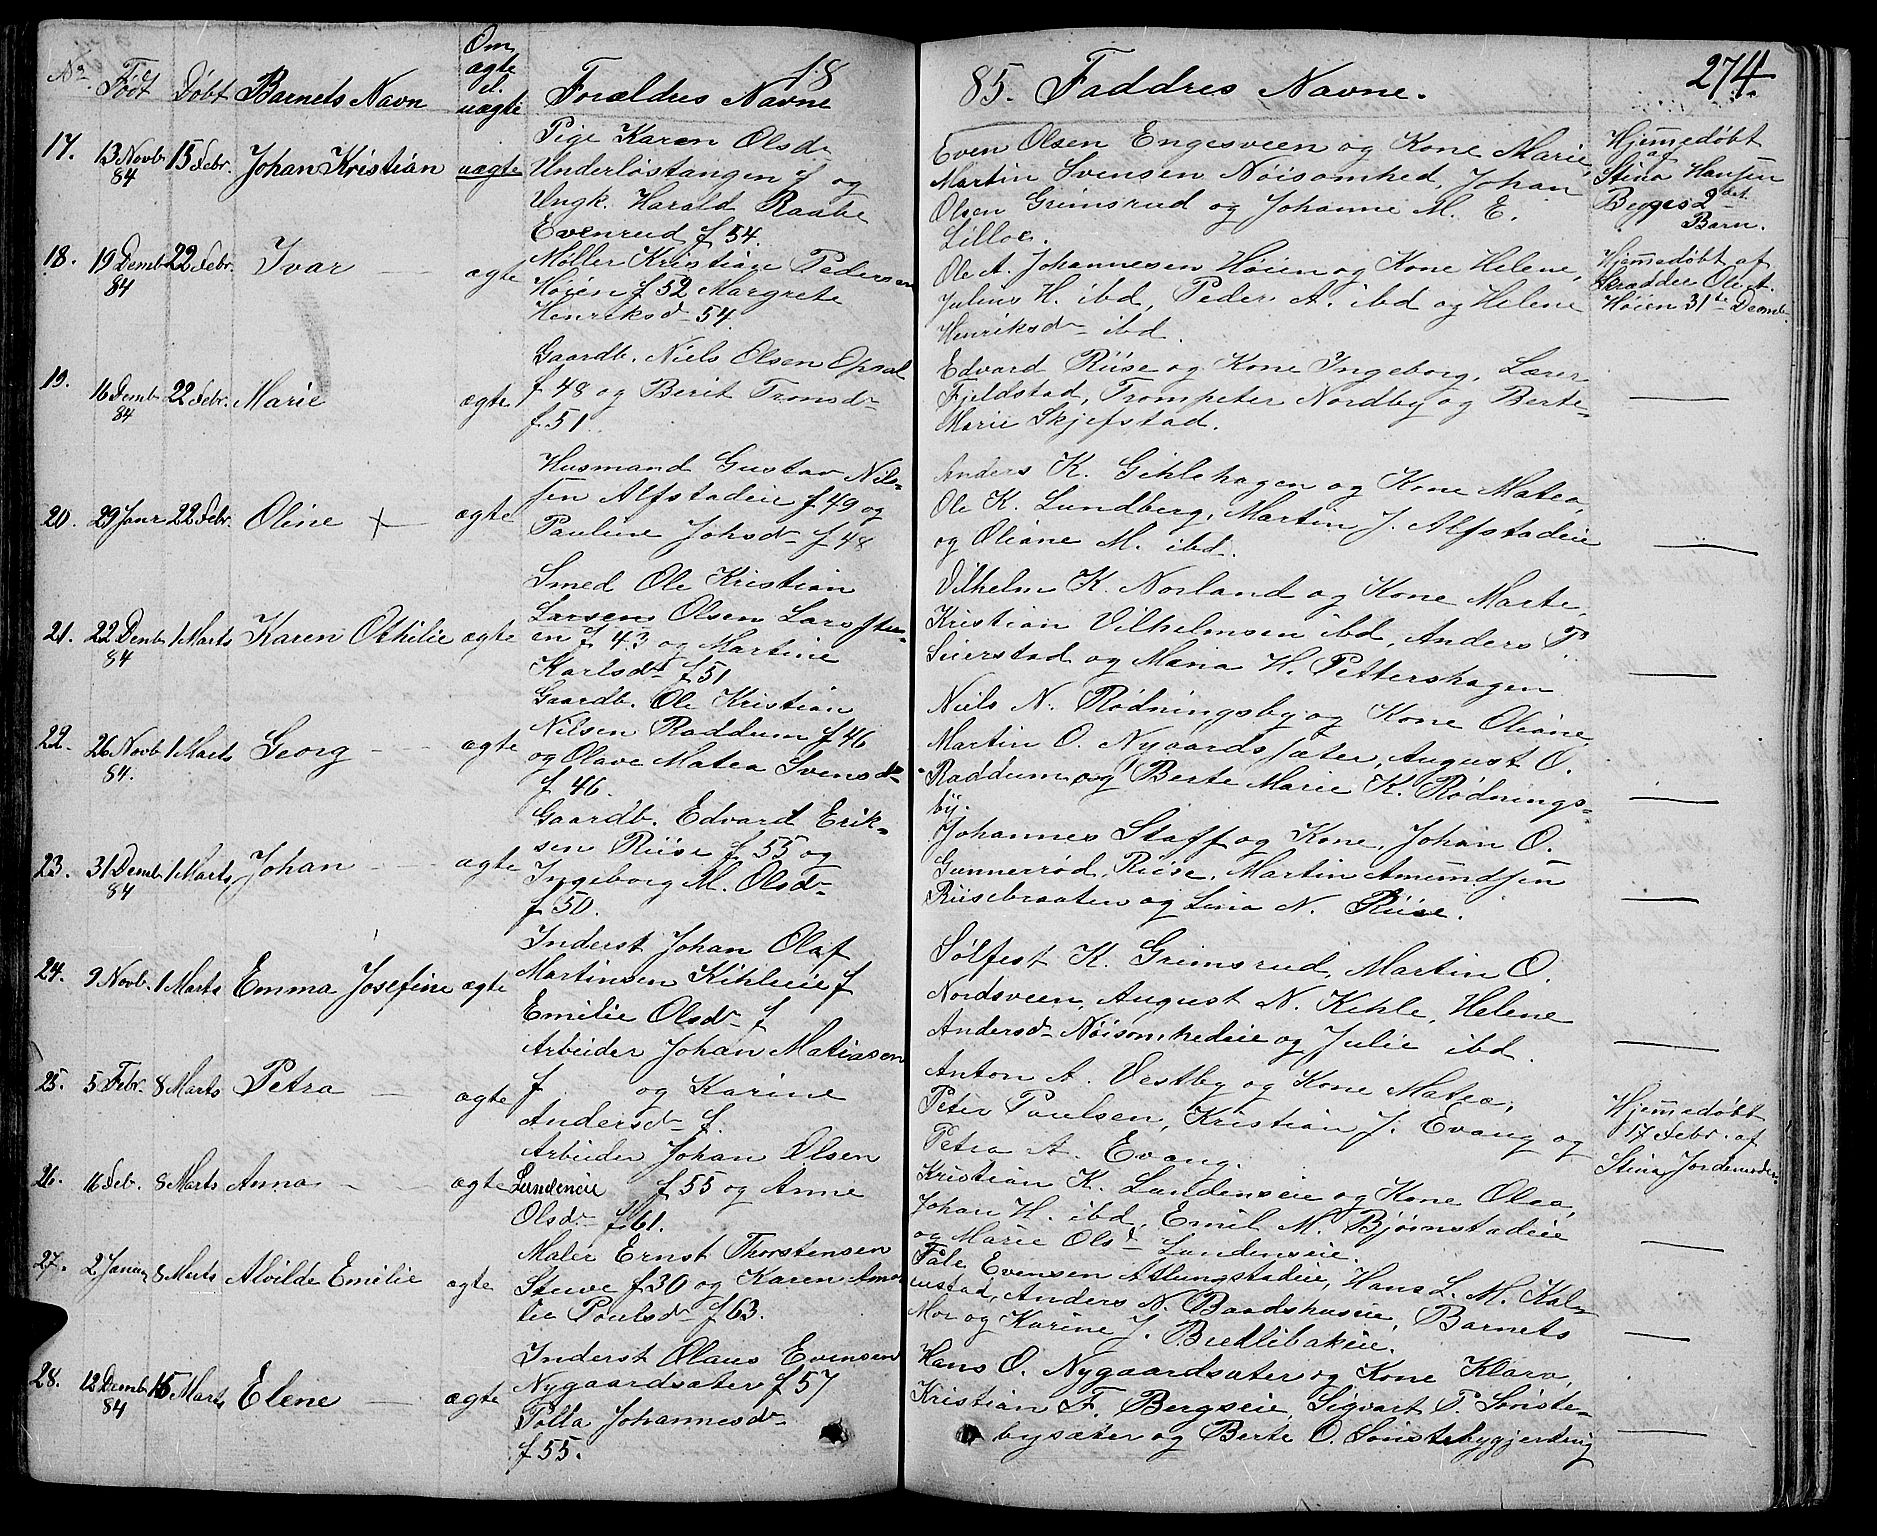 18 85. 274
No. Født Døbt Barnets Navn Om ægte el. uægte Forældres Navne Faddres Navne.
17. 13 Novb. 84 15 Febr. Johan Kristian uægte
Pige Karen Olsdr
Underløstangen f og
Ungk. Harald Raabe
Evenrud f 54.
Even Olsen Engesveen og Kone Marie,
Martin Svensen Nöisomhed, Johan
Olsen Grimsrud og Johanne M. E.
Lilloe.
Hjemedøbt
af
Stina Hansen
Begges 2det
Barn.
18. 19 Decmb. 84 22 Febr. Ivar — ægte
Møller Kristian Pedersen
Høien f 52 Margrete
Henriksdr 54.
Ole A. Johannesen Höien og Kone Helene,
Julius H. ibd, Peder A. ibd og Helene
Henriksdr ibd.
Hjemedøbt af
Skrædder Ole A.
Höien 31te Decmb.
19. 16 Decmb 84 22 Febr. Marie ægte
Gaardb. Niels Olsen Opsal
f 48 og Berit Tronsdr
f. 51.
Edvard Riise og Kone Ingeborg, Lærer
Fjeldstad, Trompeter Nordby og Berte
Marie Skjefstad.
—
20. 29 Janr 22 Febr. Oline + ægte
Husmand Gustav Nils-
sen Alfstadeie f 49 og
Pauline Johsdr f 48
Anders K. Gihlehagen og Kone Matea,
Ole K. Lundberg, Martin J. Alfstadeie
og Oliane M. ibd.
—
21. 22 Decmb 84 1 Marts Karen Othilie ægte
Smed Ole Kristian
Larsen Olsen Lars
en f 43 og Martine
Karlsdr f 51
Vilhelm K. Norland og Kone Marte,
Kristian Vilhelmsen ibd, Anders P.
Seierstad og Maria H. Pettershagen
—
22. 26 Novb 84. 1 Marts Georg — ægte
Gaardb. Ole Kristian
Nilsen Raddum f 46
og Olave Matea Svensdr
f 46.
Niels N. Rødningsby og Kone Oliane
Martin O. Nygaardsæter, August O.
Raddum og Berte Marie K. Rødnings-
by.
—
23. 31 Decmb 84 1 Marts Johan — ægte
Gaardb. Edvard Erik-
sen Riise f 55 og
Ingeborg M. Olsdr
f 50.
Johannes Staff og Kone, Johan O.
Gunnerrød, Riise, Martin Amundsen
Riisebraaten og Lina N. Riise.
—
24. 9 Novb. 1 Marts Emma Josefine ægte
Inderst Johan Olaf
Martinsen Kihleeie f
Emilie Olsdr f
Sølfest K. Grimsrud, Martin O.
Nordsveen, August N. Kihle, Helene
Andersdr Nöisomhedeie og Julie ibd.
—
25. 5 Febr. 8 Marts Petra — ægte
Arbeider Johan Matiasen
f og Karine
Andersdr f.
Anton A. Vestby og Kone Matea,
Peter Paulsen, Kristian J. Evang og
Petra A. Evang.
Hjemedøbt
17 Febr. af
Stina Jordemoder
26. 16 Feb. 8 Marts Anna — ægte
Arbeider Johan Olsen
Lundeneie f 55 og Anne
Olsdr f 61.
Kristian K. Lundenseie og Kone Olea,
Johan H. ibd, Emil M. Bjørnstadeie
og Marie Olsdr Lundenseie.
—
27. 2 Januar 8 Marts Alvilde Emilie ægte
Maler Ernst Thorstensen
Stuve f 30 og Karen Ama
lie Paulsdr f 63.
Pale Evensen Aslungstadeie, Hans L. M. Kal-
rustad, Anders N. Baadshuseie, Barnets
Mor og Karine J. Budlibakeie.
—
28. 12 Decmb 84 15 Marts Elene — ægte
Inderst Olaus Evensen
Nygaardsæter f 57
Polla Johannesdr
f 55.
Hans O. Nygaardsæter og Kone Klara,
Kristian F. Bergseie, Sigvart P. Sönste-
bysæter og Berte O. Sönstebygjerding
—